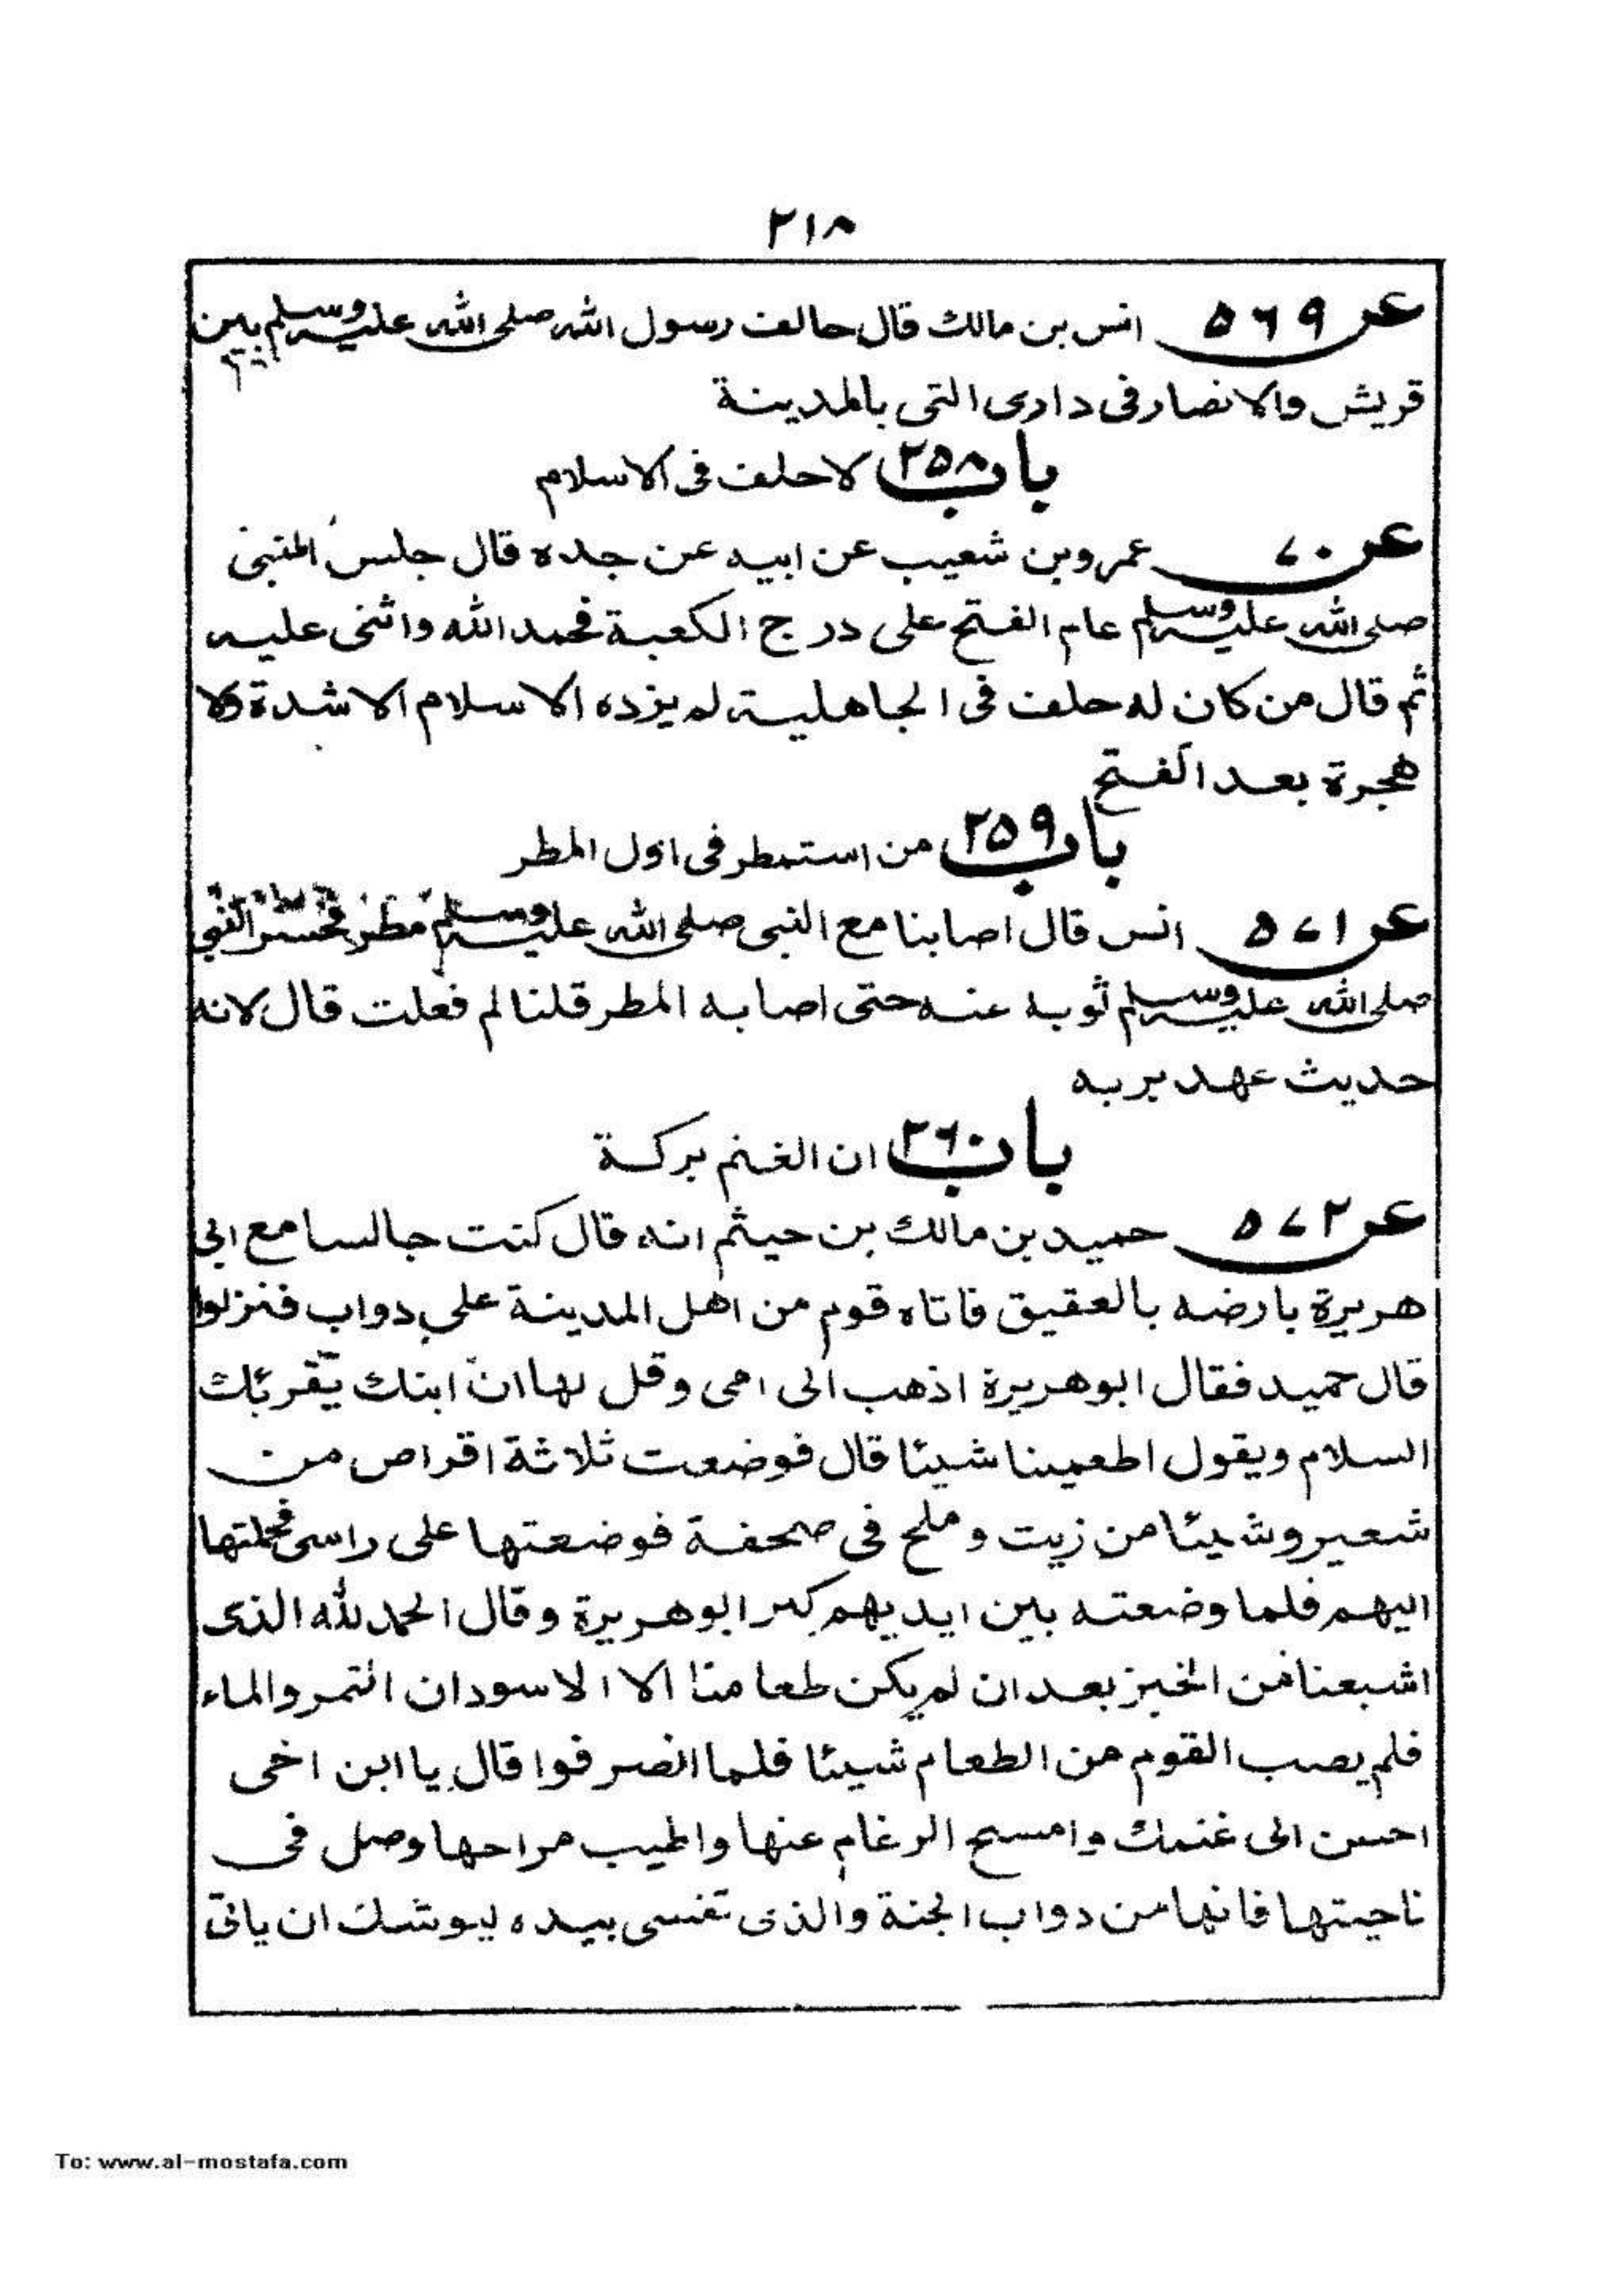 ٢١٨
عن ٥٦٩ انس بن مالك قال حالف رسول الله صلى الله عليه وسلم بين
قريش والانصار فى دارى التى بالمدينة
باب ٢٥٨ لا حلف فى الاسلام
عن ٧٠ عمرو بن شعيب عن ابيه عن جده قال جلس النبى
صلى الله عليه وسلم عام الفتح على درج الكعبة فحمد الله واثنى عليه
ثم قال من كان له حلف فى الجاهلية لم يزده الاسلام الا شدة ولا
هجرة بعد الفتح
باب ٢٥٩ من استمطر فى اول المطر
عن ٥٧١ انس قال اصابنا مع النبى صلى الله عليه وسلم مطر فحسر النبى
صلى الله عليه وسلم ثوبه عنه حتى اصابه المطر قلنا لم فعلت قال لانه
حديث عهد بربه
باب ٢٦٠ ان الغنم بركة
عن ٥٧٢ حميد بن مالك بن حيثم انه قال كنت جالسا مع ابى
هريرة بارضه بالعقيق فاتاه قوم من اهل المدينة على دواب فنزلوا
قال حميد فقال ابو هريرة اذهب الى امى وقل لها ان ابنك يقرئك
السلام ويقول اطعمينا شيئا قال فوضعت ثلاثة اقراص من
شعير وشيئا من زيت وملح فى صحفة فوضعتها على راسى فحملتها
اليهم فلما وضعته بين ايديهم كبر ابو هريرة وقال الحمد لله الذى
اشبعنا من الخبز بعد ان لم يكن طعامنا الا الاسودان التمر والماء
فلم يصب القوم من الطعام شيئا فلما انصرفوا قال يا ابن اخى
احسن الى غنمك وامسح الرغام عنها واطيب مراحها وصل فى
ناحيتها فانها من دواب الجنة والذى نفسى بيده ليوشك ان ياتى
To: www.al-mostafa.com